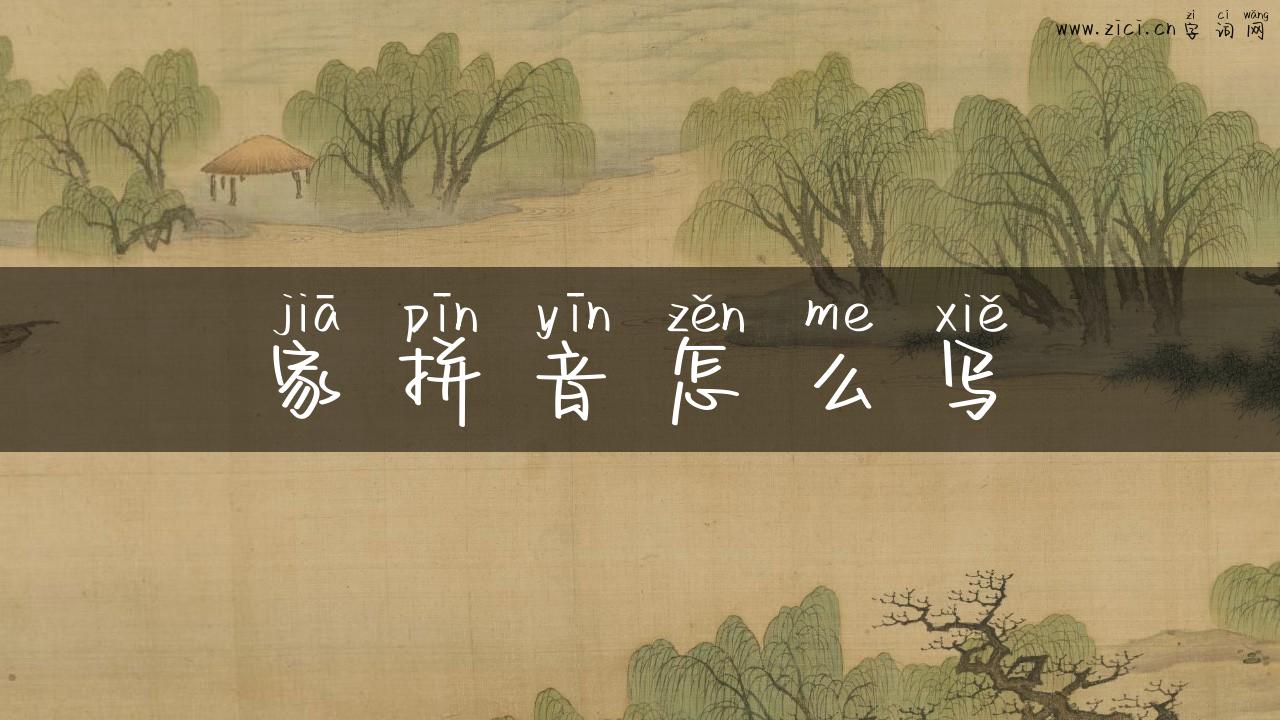 zì cí wǎng
www.zici.cn字词网
jiā pīn yīn zěn me xiě
家拼音怎么写